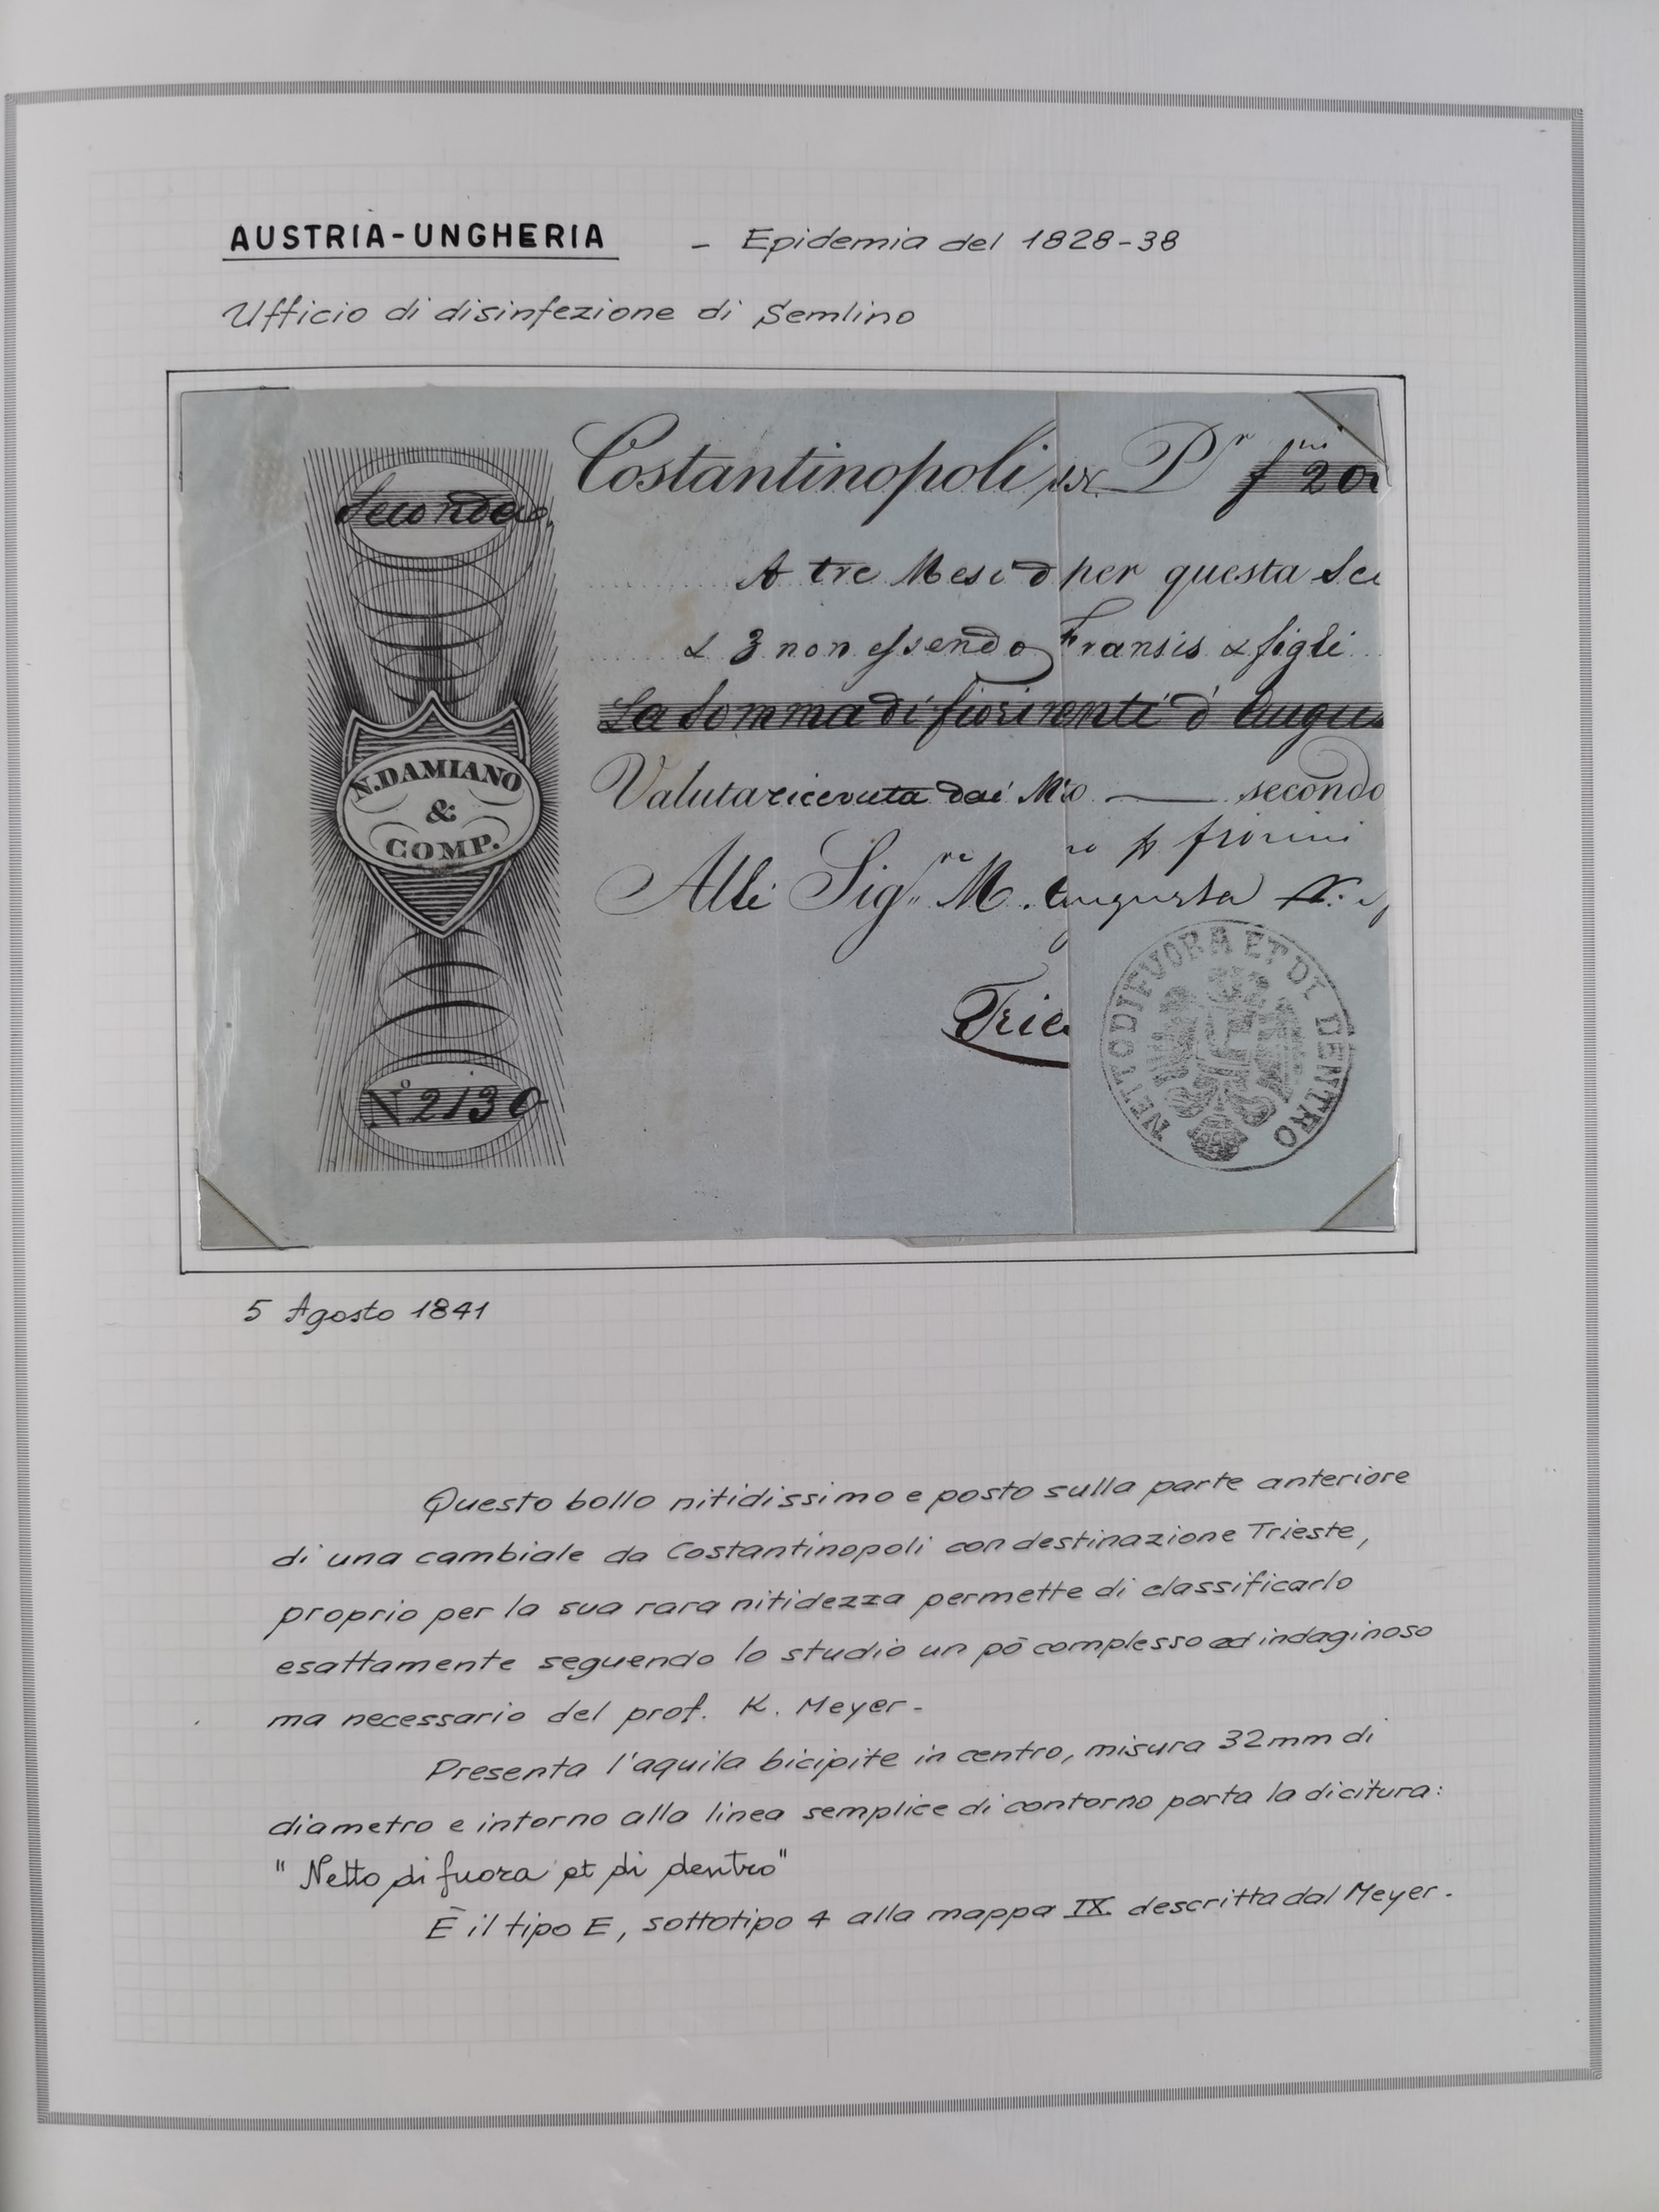 AUSTRIA-UNGHERIA - Epidemia del 1828-38
Ufficio di disinfezione di Semlino
Costantinopoli Pr f 20
Seconda
A tre Mesi d per questa Sec
& 3 non essendo Fransis & figli
La Somma di fiorini venti d' Augu
N. DAMIANO
&
COMP.
Valuta ricevuta dai secondo
po fiorini
Alli Sig.ri M. Augusta
Trie
NETTO DI FVORA ET DI DENTRO
No 2130
5 Agosto 1841
Questo bollo nitidissimo e posto sulla parte anteriore
di una cambiale da Costantinopoli con destinazione Trieste,
proprio per la sua rara nitidezza permette di classificarlo
esattamente seguendo lo studio un pò complesso ed indaginoso
ma necessario del prof. K. Meyer-
Presenta l'aquila bicipite in centro, misura 32mm di
diametro e intorno alla linea semplice di contorno porta la dicitura:
"Netto di fuora et di dentro"
È il tipo E, sottotipo 4 alla mappa IX descritta dal Meyer.